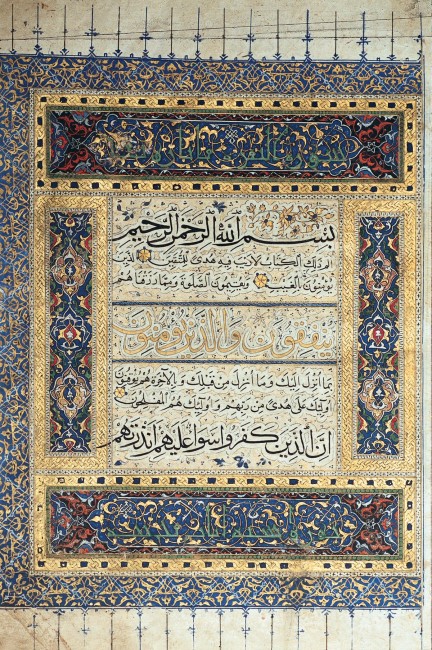 بسم الله الرحمن الرحيم
الم ذلك الكتاب لا ريب فيه هدى للمتقين الذين
يؤمنون بالغيب ويقيمون الصلوة ومما رزقناهم
ينفقون والذين يؤمنون
بما انزل اليك وما انزل من قبلك وبالاخرة هم يوقنون
اولئك على هدى من ربهم واولئك هم المفلحون
ان الذين كفروا سواء عليهم ءانذرتهم